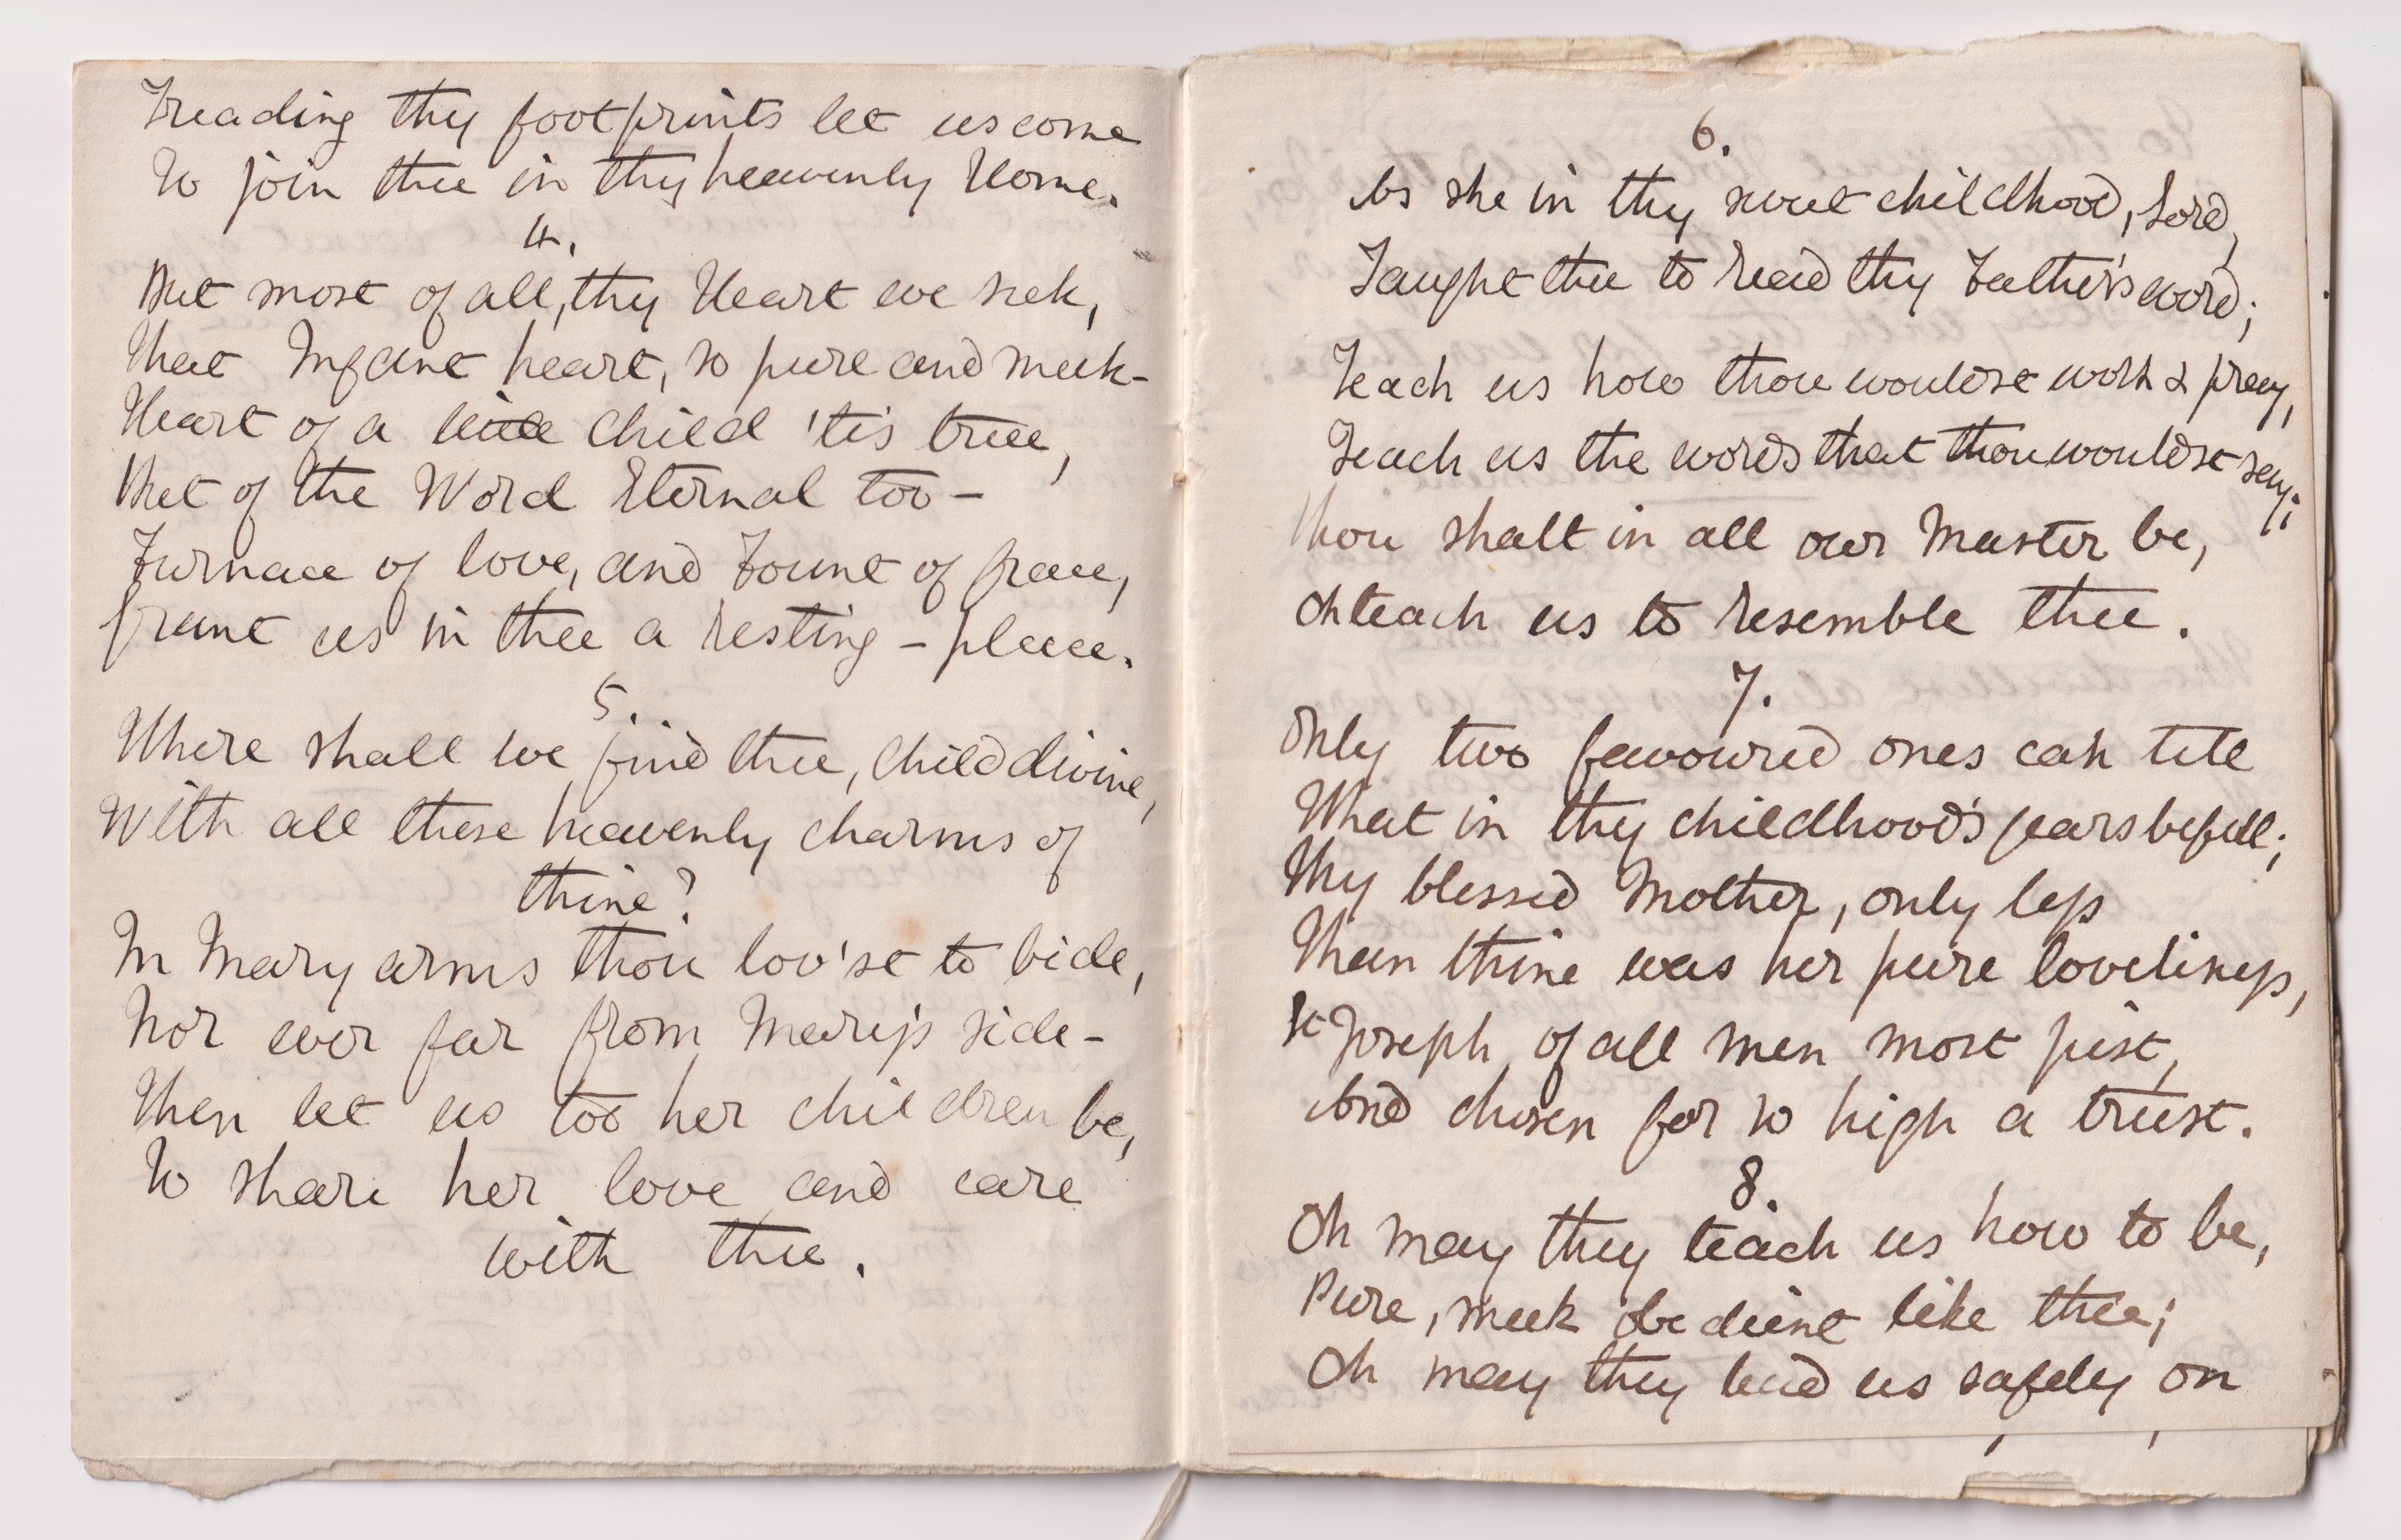 Treading thy footprints let us come
To join thee in thy heavenly Home.
4.
But most of all, thy Heart we seek,
That Infant heart, so pure and meek-
Heart of a little Child 'tis true,
But of the Word Eternal too -
Furnace of love, and Fount of grace,
Grant us in thee a resting - place.
5.
Where shall we find thee, Child divine,
With all these heavenly charms of
thine?
In Mary arms thou lov'st to bide,
Nor ever far from Mary's side -
Then let us too her children be,
To share her love and care
with thee.
6.
As she in thy sweet childhood, Lord,
Taught thee to read thy Father's word;
Teach us how thou wouldst work & pray,
Teach us the words that thou wouldst say;
Thou shalt in all our Master be,
Oh teach us to resemble thee.
7.
Only two favoured ones can tell
What in thy childhood's years befell;
Thy blessed Mother, only less
Than thine was her pure loveliness,
St Joseph of all men most just,
And chosen for so high a trust.
8.
Oh may they teach us how to be,
Pure, meek obedient like thee;
Oh may they lead us safely on